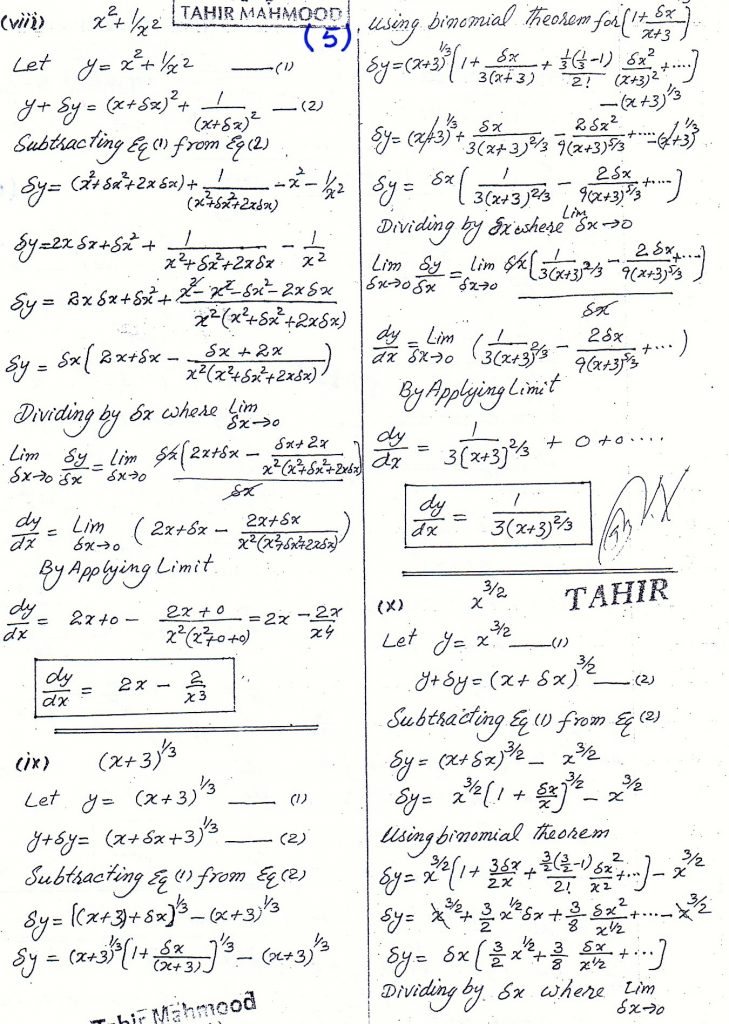 TAHIR MAHMOOD
(5)
(viii) x² + 1/x²
Let y = x² + 1/x² ——(1)
y + δy = (x+δx)² + 1/(x+δx)² —(2)
Subtracting Eq (1) from Eq (2)
δy = (x²+δx²+2xδx) + 1/(x²+δx²+2xδx) - x² - 1/x²
δy = 2xδx + δx² + 1/(x²+δx²+2xδx) - 1/x²
δy = 2xδx + δx² + (x² - x² - δx² - 2xδx)/(x²(x²+δx²+2xδx))
δy = δx(2x+δx - (δx+2x)/(x²(x²+δx²+2xδx)))
Dividing by δx where Lim δx→0
Lim δx→0 δy/δx = lim δx→0 δx(2x+δx - (δx+2x)/(x²(x²+δx²+2xδx)))/δx
dy/dx = Lim δx→0 (2x+δx - (2x+δx)/(x²(x²+δx²+2xδx)))
By Applying Limit
dy/dx = 2x+0 - (2x+0)/(x²(x²+0+0)) = 2x - 2x/x⁴
dy/dx = 2x - 2/x³
(ix) (x+3)^1/3
Let y = (x+3)^1/3 —— (1)
y+δy = (x+δx+3)^1/3 —— (2)
Subtracting Eq (1) from Eq (2)
δy = [(x+3)+δx]^1/3 - (x+3)^1/3
δy = (x+3)^1/3 [1 + δx/(x+3)]^1/3 - (x+3)^1/3
Tahir Mahmood
using binomial theorem for [1 + δx/(x+3)]
δy = (x+3)^1/3 [1 + δx/3(x+3) + (1/3(1/3-1)/2!) δx²/(x+3)² + ....] - (x+3)^1/3
δy = (x+3)^1/3 + δx/3(x+3)^2/3 - 2δx²/9(x+3)^5/3 + .... - (x+3)^1/3
δy = δx[1/3(x+3)^2/3 - 2δx/9(x+3)^5/3 + ....]
Dividing by δx where Lim δx→0
Lim δx→0 δy/δx = lim δx→0 δx[1/3(x+3)^2/3 - 2δx/9(x+3)^5/3 + ...]/δx
dy/dx = Lim δx→0 (1/3(x+3)^2/3 - 2δx/9(x+3)^5/3 + ...)
By Applying Limit
dy/dx = 1/3(x+3)^2/3 + 0 + 0 ....
dy/dx = 1/3(x+3)^2/3
TAHIR
(x) x^3/2
Let y = x^3/2 ——(1)
y+δy = (x+δx)^3/2 —— (2)
Subtracting Eq (1) from Eq (2)
δy = (x+δx)^3/2 - x^3/2
δy = x^3/2 [1 + δx/x]^3/2 - x^3/2
Using binomial theorem
δy = x^3/2 [1 + 3δx/2x + (3/2(3/2-1)/2!) δx²/x² + ...] - x^3/2
δy = x^3/2 + 3/2 x^1/2 δx + 3/8 δx²/x^1/2 + .... - x^3/2
δy = δx[3/2 x^1/2 + 3/8 δx/x^1/2 + ...]
Dividing by δx where Lim δx→0